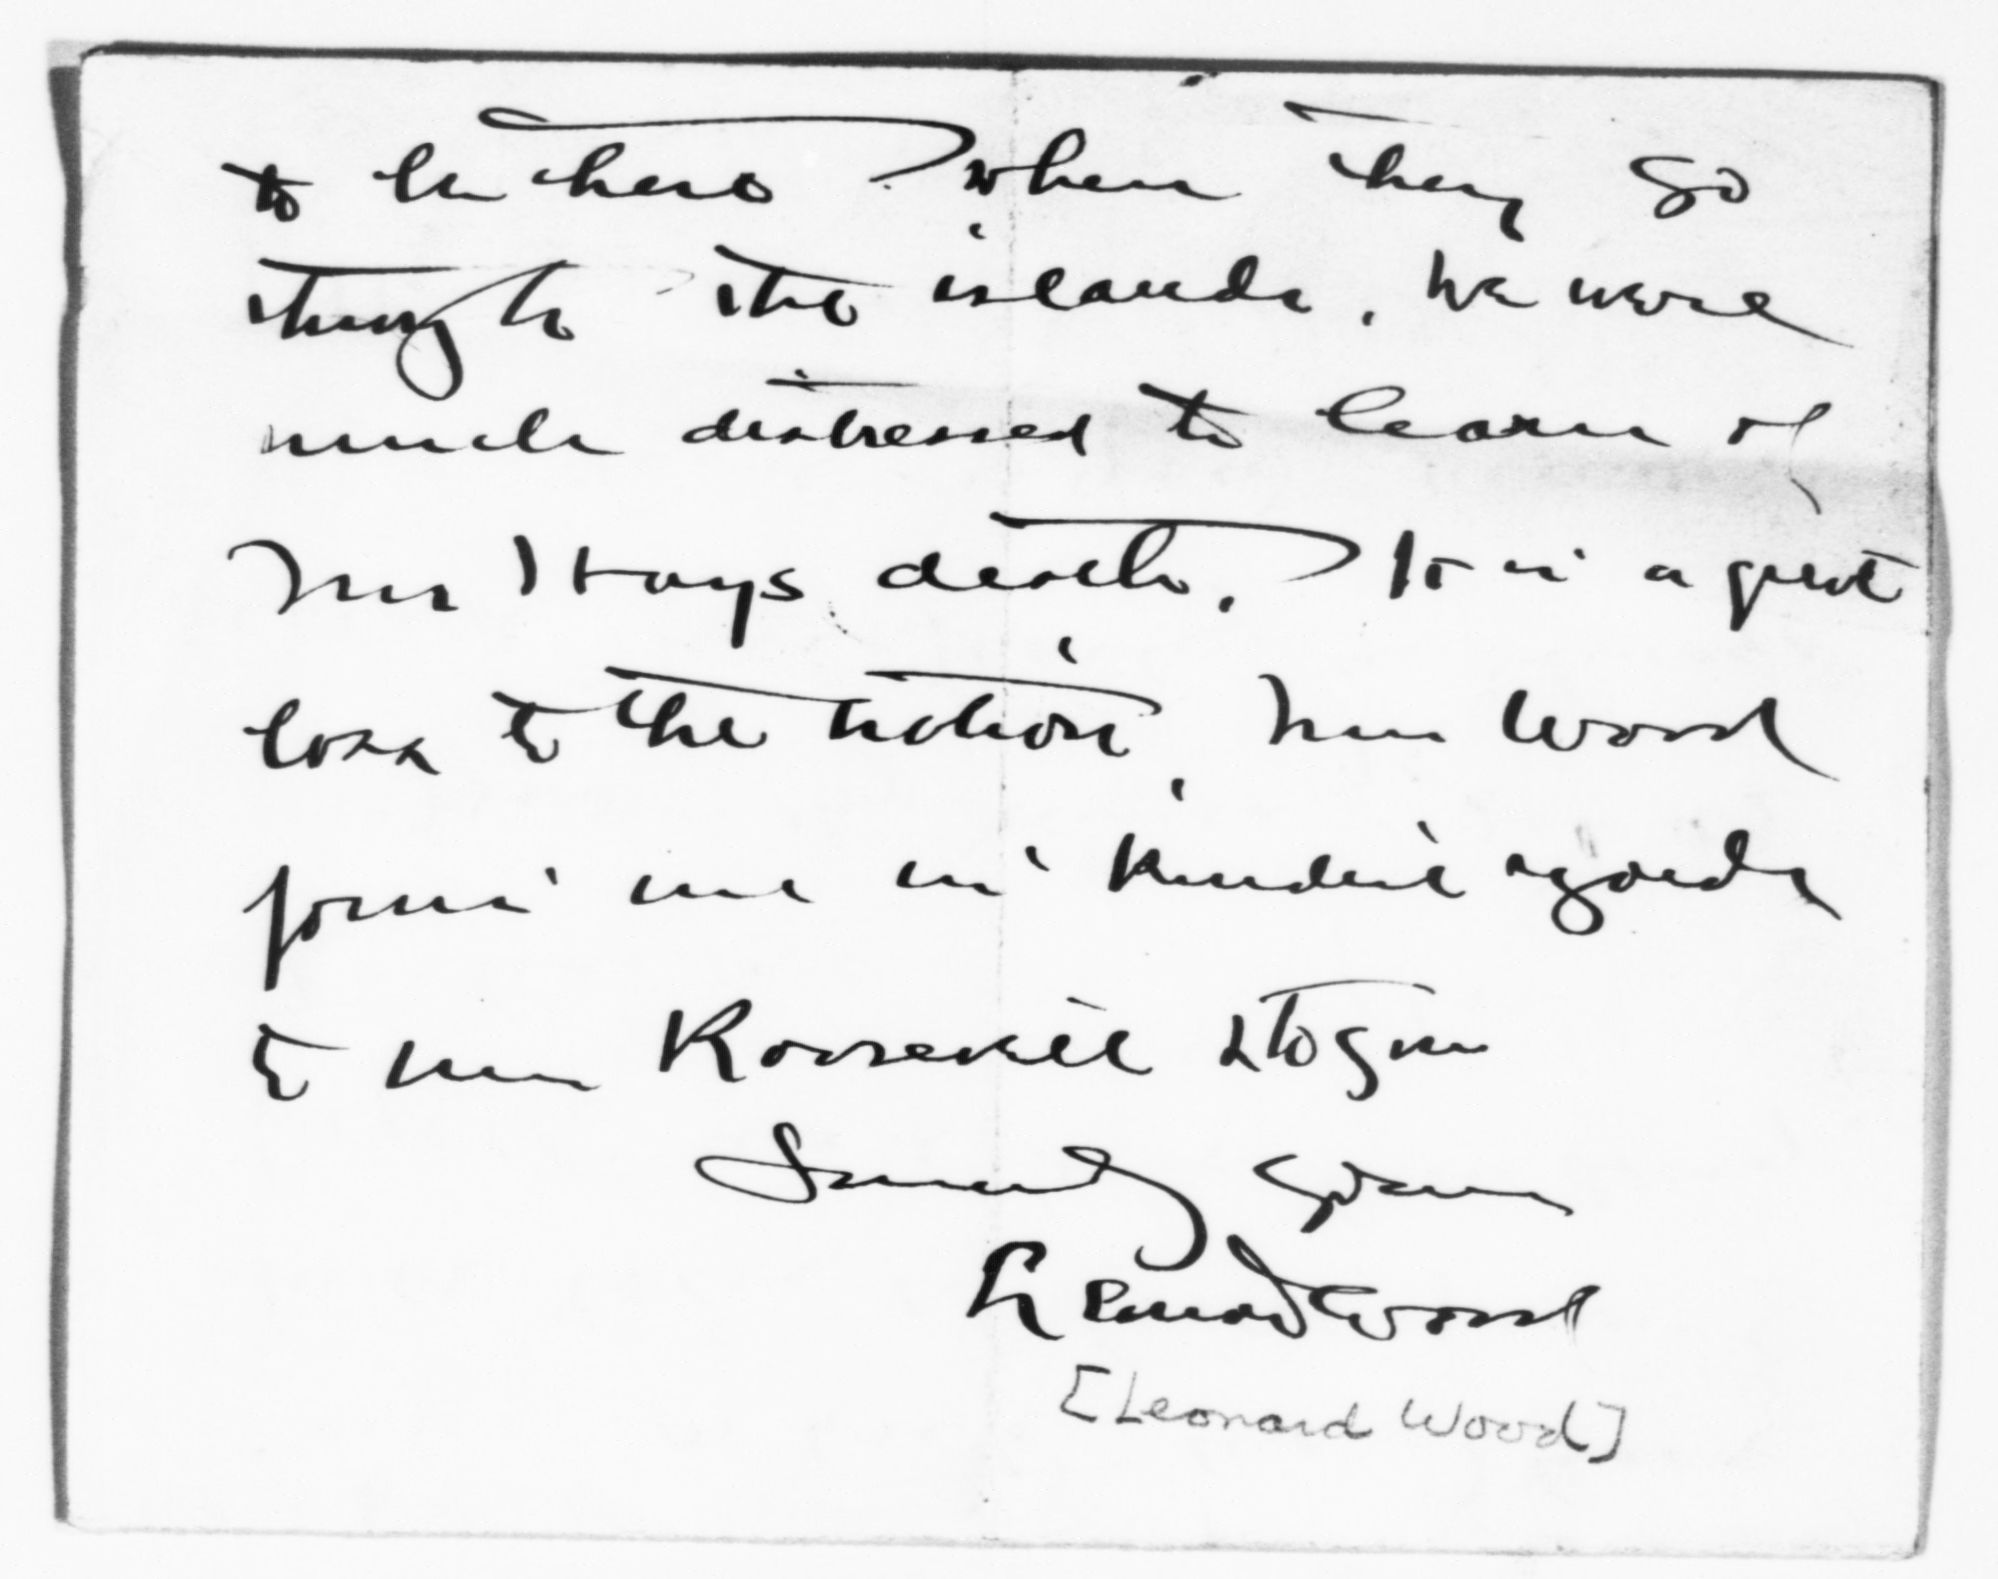 to be here when they go
through the islands. We were
much distressed to learn of
Mr Hays death. It is a great
loss to the nation. Mrs Wood
joins me in kindest regards
to Mrs Roosevelt & to you
Sincerely yours
Leonard Wood
[Leonard Wood]